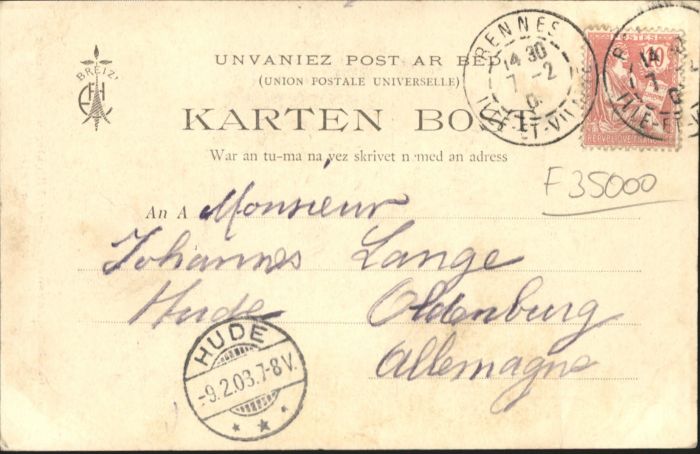 BREIZ'
EFH
UNVANIEZ POST AR BED
(UNION POSTALE UNIVERSELLE)
KARTEN BOST
War an tu-ma na vez skrivet n'med an adress
RENNES
14 30
7 - 2
ILLE-ET-VILAINE
14
7
ILLE-ET-V
POSTES
10
REPUBLIQUE FRANC
F35000
An A Monsieur
Johannes Lange
Hude Oldenburg
Allemagne
HUDE
-9.2.03.7-8V.